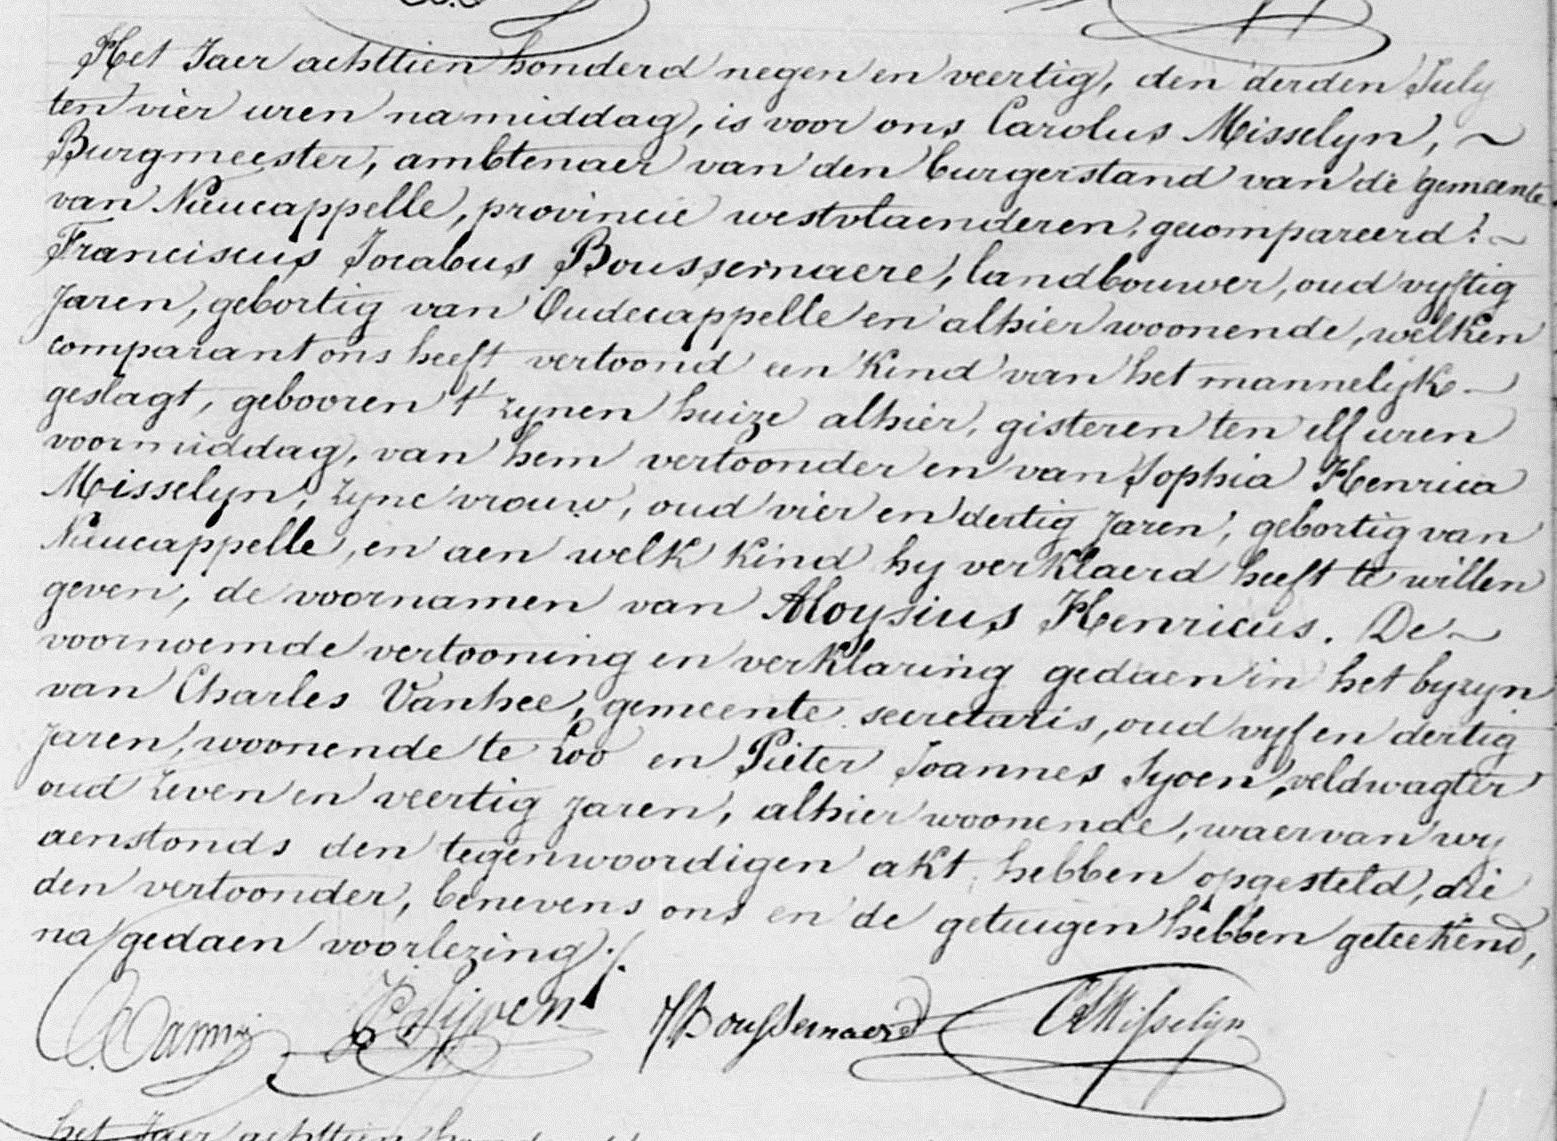 Het Jaer achttien honderd negen en veertig, den derden July
ten vier uren namiddag, is voor ons Carolus Misselyn, ~
Burgmeester, ambtenaer van den burgerstand van de gemeente
van Nieucappelle, provincie westvlaenderen, gecompareerd: ~
Franciscus Jocabus Boussemaere, landbouwer, oud vyftig
Jaren, gebortig van Oudecappelle en alhier woonende, welken
comparant ons heeft vertoond een kind van het mannelijke —
geslagt, gebooren t' zynen huize alhier, gisteren ten elf uren
voormiddag, van hem vertoonder en van Sophia Henrica
Misselyn, zyne vrouw, oud vier en dertig Jaren, gebortig van
Nieucappelle, en aen welk kind hy verklaerd heeft te willen
geven, de voornamen van Aloysius Henricus. De ~
voornoemde vertooning en verklaring gedaen in het byzyn
van Charles Vanhee, gemeente secretaris, oud vyf en dertig
Jaren, woonende te Loo en Pieter Joannes Syoen, veldwagter
oud zeven en veertig Jaren, alhier woonende, waervan wy
aenstonds den tegenwoordigen akt hebben opgesteld, die
den vertoonder, benevens ons en de getuigen hebben geteekend,
na gedaen voorlezing ./.
Boussemaere CMisselijn
het Jaer achttien